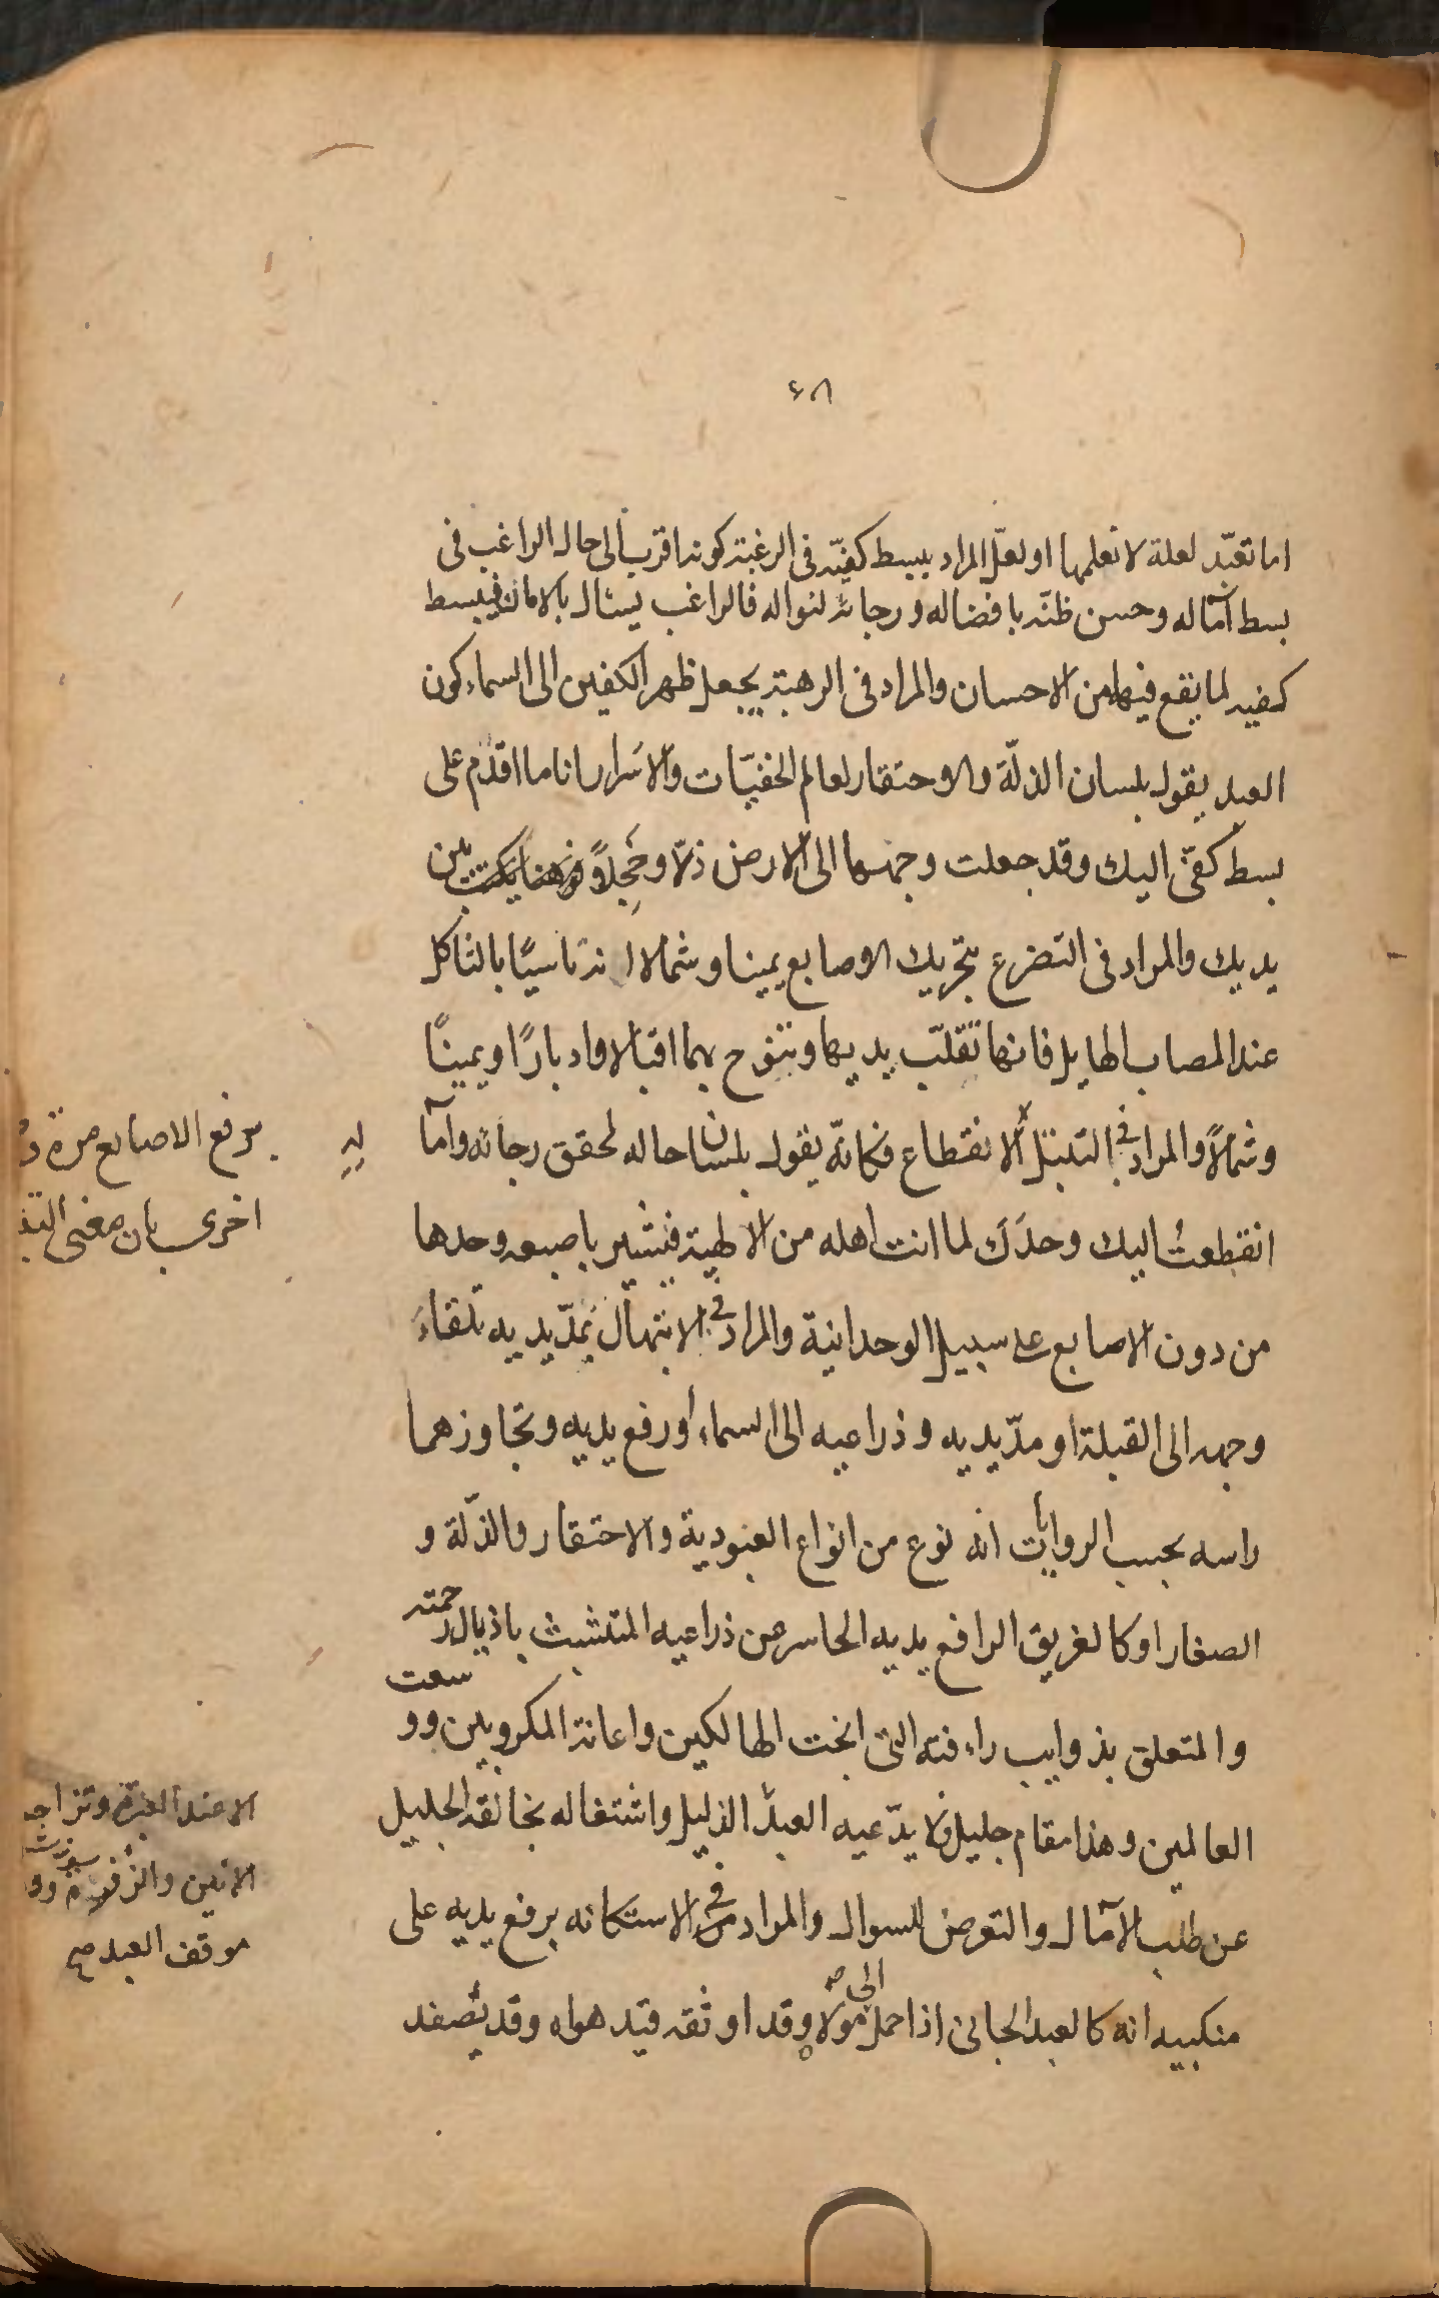 ٤٨
اما تعبّد لعلة لا نعلمها او لعلّ المراد ببسط كفيّه فى الرغبة كونه اقرب الى حال الراغب فى
بسط آماله وحسن ظنّه بافضاله ورجائه لنواله فالراغب يسئال بالامان فيبسط
كفيه لما يقع فيهما من الاحسان والمراد فى الرهبة بجعل ظهر الكفين الى السماء كون
العبد يقول بلسان الذلّة والاحتقار لعالم الخفيّات والاسَرار انا ما اقدم على
بسط كفىّ اليك وقد جعلت وجههما الى الارض ذلّا وخَجِلاً بين
يديك والمراد فى التضرع بتحريك الاصابع يمينا وشمالا انه تاسيًا بالثاكل
عند المصاب الهايل فانها تقلّب يديها وتنوح بهما اقبالا وادبارًا ويمينًا
وشمالاً والمراد فى التبتل الانقطاع فكانّه يقول بلسان حاله لمحقق رجائه وآما
له برفع الاصابع مرة و
اخرى بان معنى
انقطعتُ اليك وحدَكَ لما انت اهله من الالهية فيشير باصبعه وحدها
من دون الاصابع على سبيل الوحدانية والمراد فى الابتهال بمدّ يديه تلقاءَ
وجهه الى القبلة او مدّ يديه وذراعيه الى السماء او رفع يديه وتجاوزهما
راسه بحسب الروايات انه نوع من انواع العبودية والاحتقار والذلّة و
الصغار او كالغريق الرافع يديه الحاسر عن ذراعيه المتشبث باذيال رحمته
والمتعلق بذوايب راءفته التى انجت الهالكين واعانة المكروبين و وسعت
العالمين وهذا مقام جليل فلا يدّعيه العبد الذليل واشتغاله بخالقه الجليل
الا عند العبرة وتزاحم
الانين والزفرة ووقو
موقف العبد صح
عن طلب الآمال والتعرض للسوال والمراد فى الاستكانه برفع يديه على
منكبيه انه كالعبد الجانى اذا حمل الى مولاه وقد اوثقه قيد هواه وقد تصفد